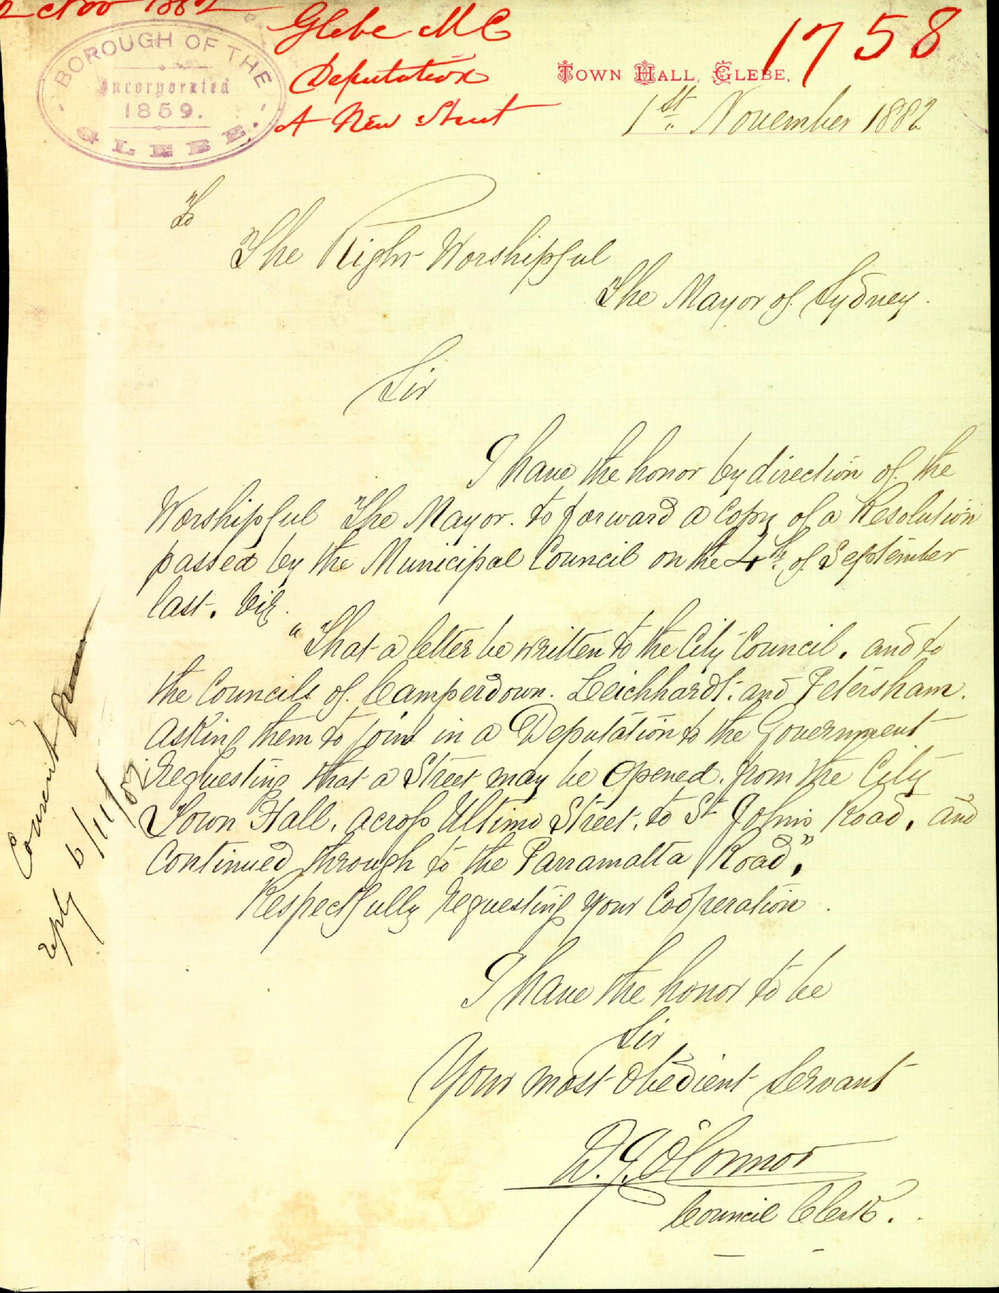 2 Nov 1882
Glebe M C
Deputation
A New Street
1758
BOROUGH OF THE
Incorporated
1859.
GLEBE.
Town Hall, Glebe,
1st November 1882
To
The Right Worshipful
The Mayor of Sydney.
Sir
I have the honor by direction of the
Worshipful The Mayor. to forward a Copy of a Resolution
passed by the Municipal Council on the 4th of September
last. Viz.
"That a letter be written to the City Council, and to
the Councils of Camperdown. Leichhardt. and Petersham.
asking them to join in a Deputation to the Government
requesting that a Street may be opened. from the City
Town Hall. across Ultimo Street. to St Johns Road, and
continued through to the Parramatta Road",
Respectfully requesting your Cooperation.
I have the honor to be
Sir
Your most obedient Servant
D. J. O'Connor
Council Clerk.
reply 6/11/82